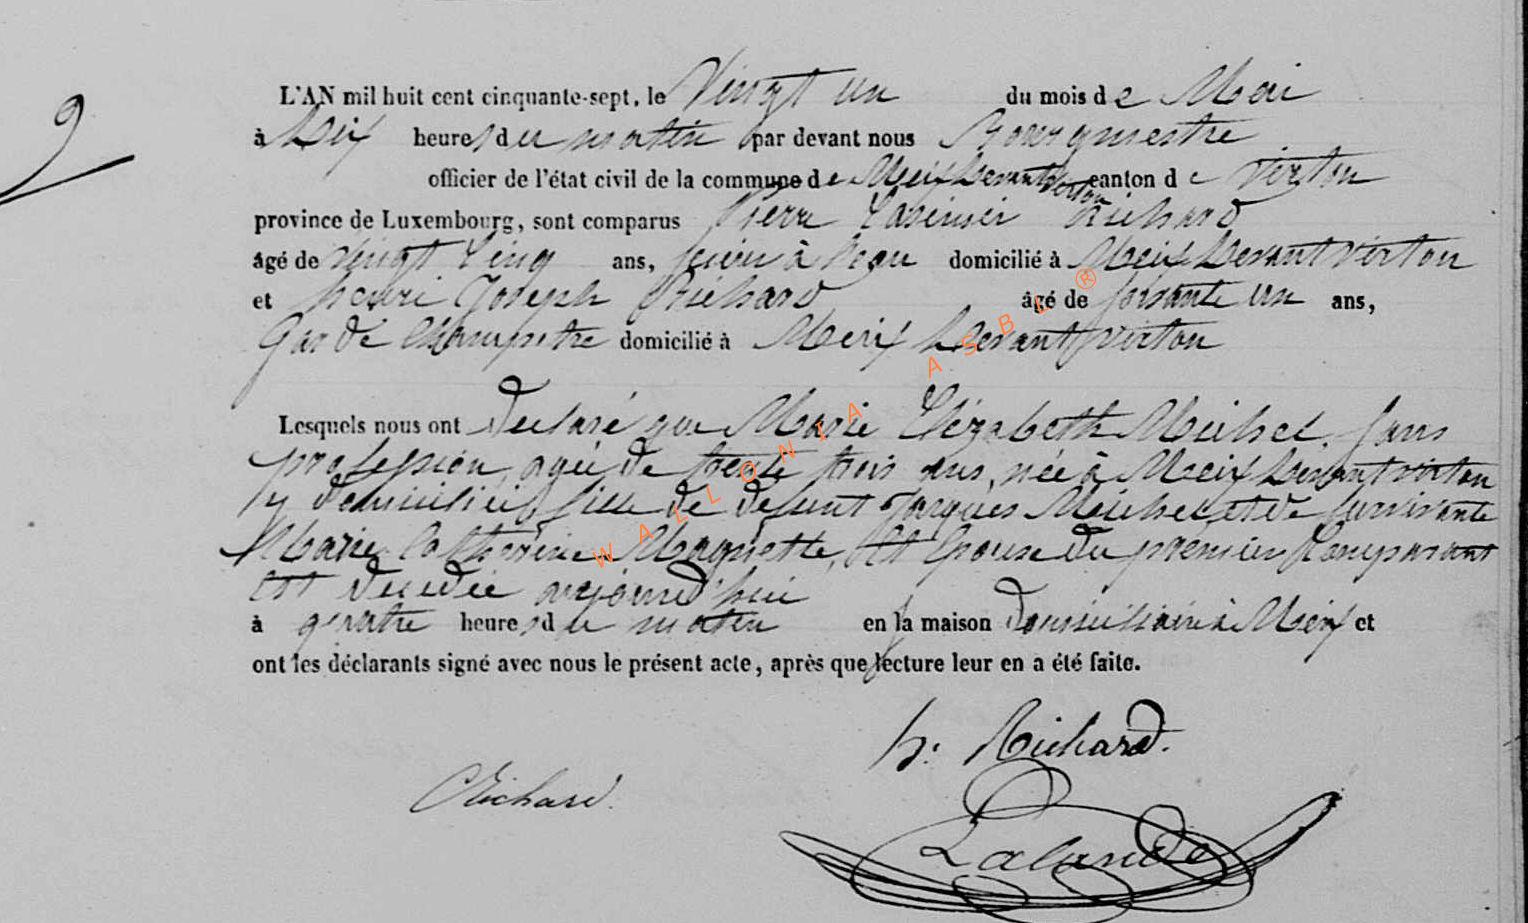 9
L'AN mil huit cent cinquante-sept, le Vingt un du mois de Mai
à Dix heures du matin par devant nous Bourgmestre
officier de l'état civil de la commune de Meix Devant Virton canton de Virton
province de Luxembourg, sont comparus Pierre Casimir Richard
âgé de vingt Cinq ans, domicilié à Meix Devant Virton
et henri Joseph Richard âgé de soisante un ans,
Garde Champetre domicilié à Meix Devant Virton
Lesquels nous ont Declaré que Marie Elizabeth Michel, sans
profession, agée de trente trois ans, née à Meix Devant Virton
y domiciliée, fille de defunt Jacques Michel et de survivante
Marie Catherine Maquette, Et Epouse du premier Comparant
Est decedée aujourd'hui
à quatre heures du matin en la maison Domiciliaire à Meix et
ont les déclarants signé avec nous le présent acte, après que lecture leur en a été faite.
h. Richard.
Richard.
Lalande
WALLONIA ASBL ®